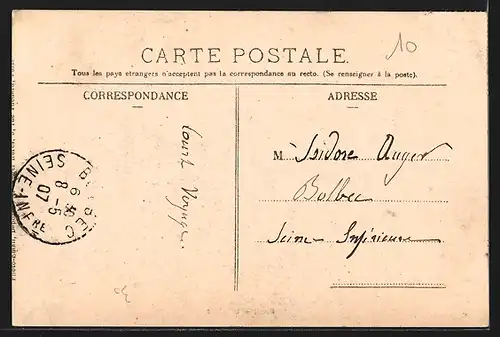 10
CARTE POSTALE.
Tous les pays étrangers n'acceptent pas la correspondance au recto. (Se renseigner à la poste).
CORRESPONDANCE
ADRESSE
Court Voyage.
M. Isidore Auger
Bolbec
Seine Inférieure
BOLBEC
8 - 5
07
SEINE-INFRE